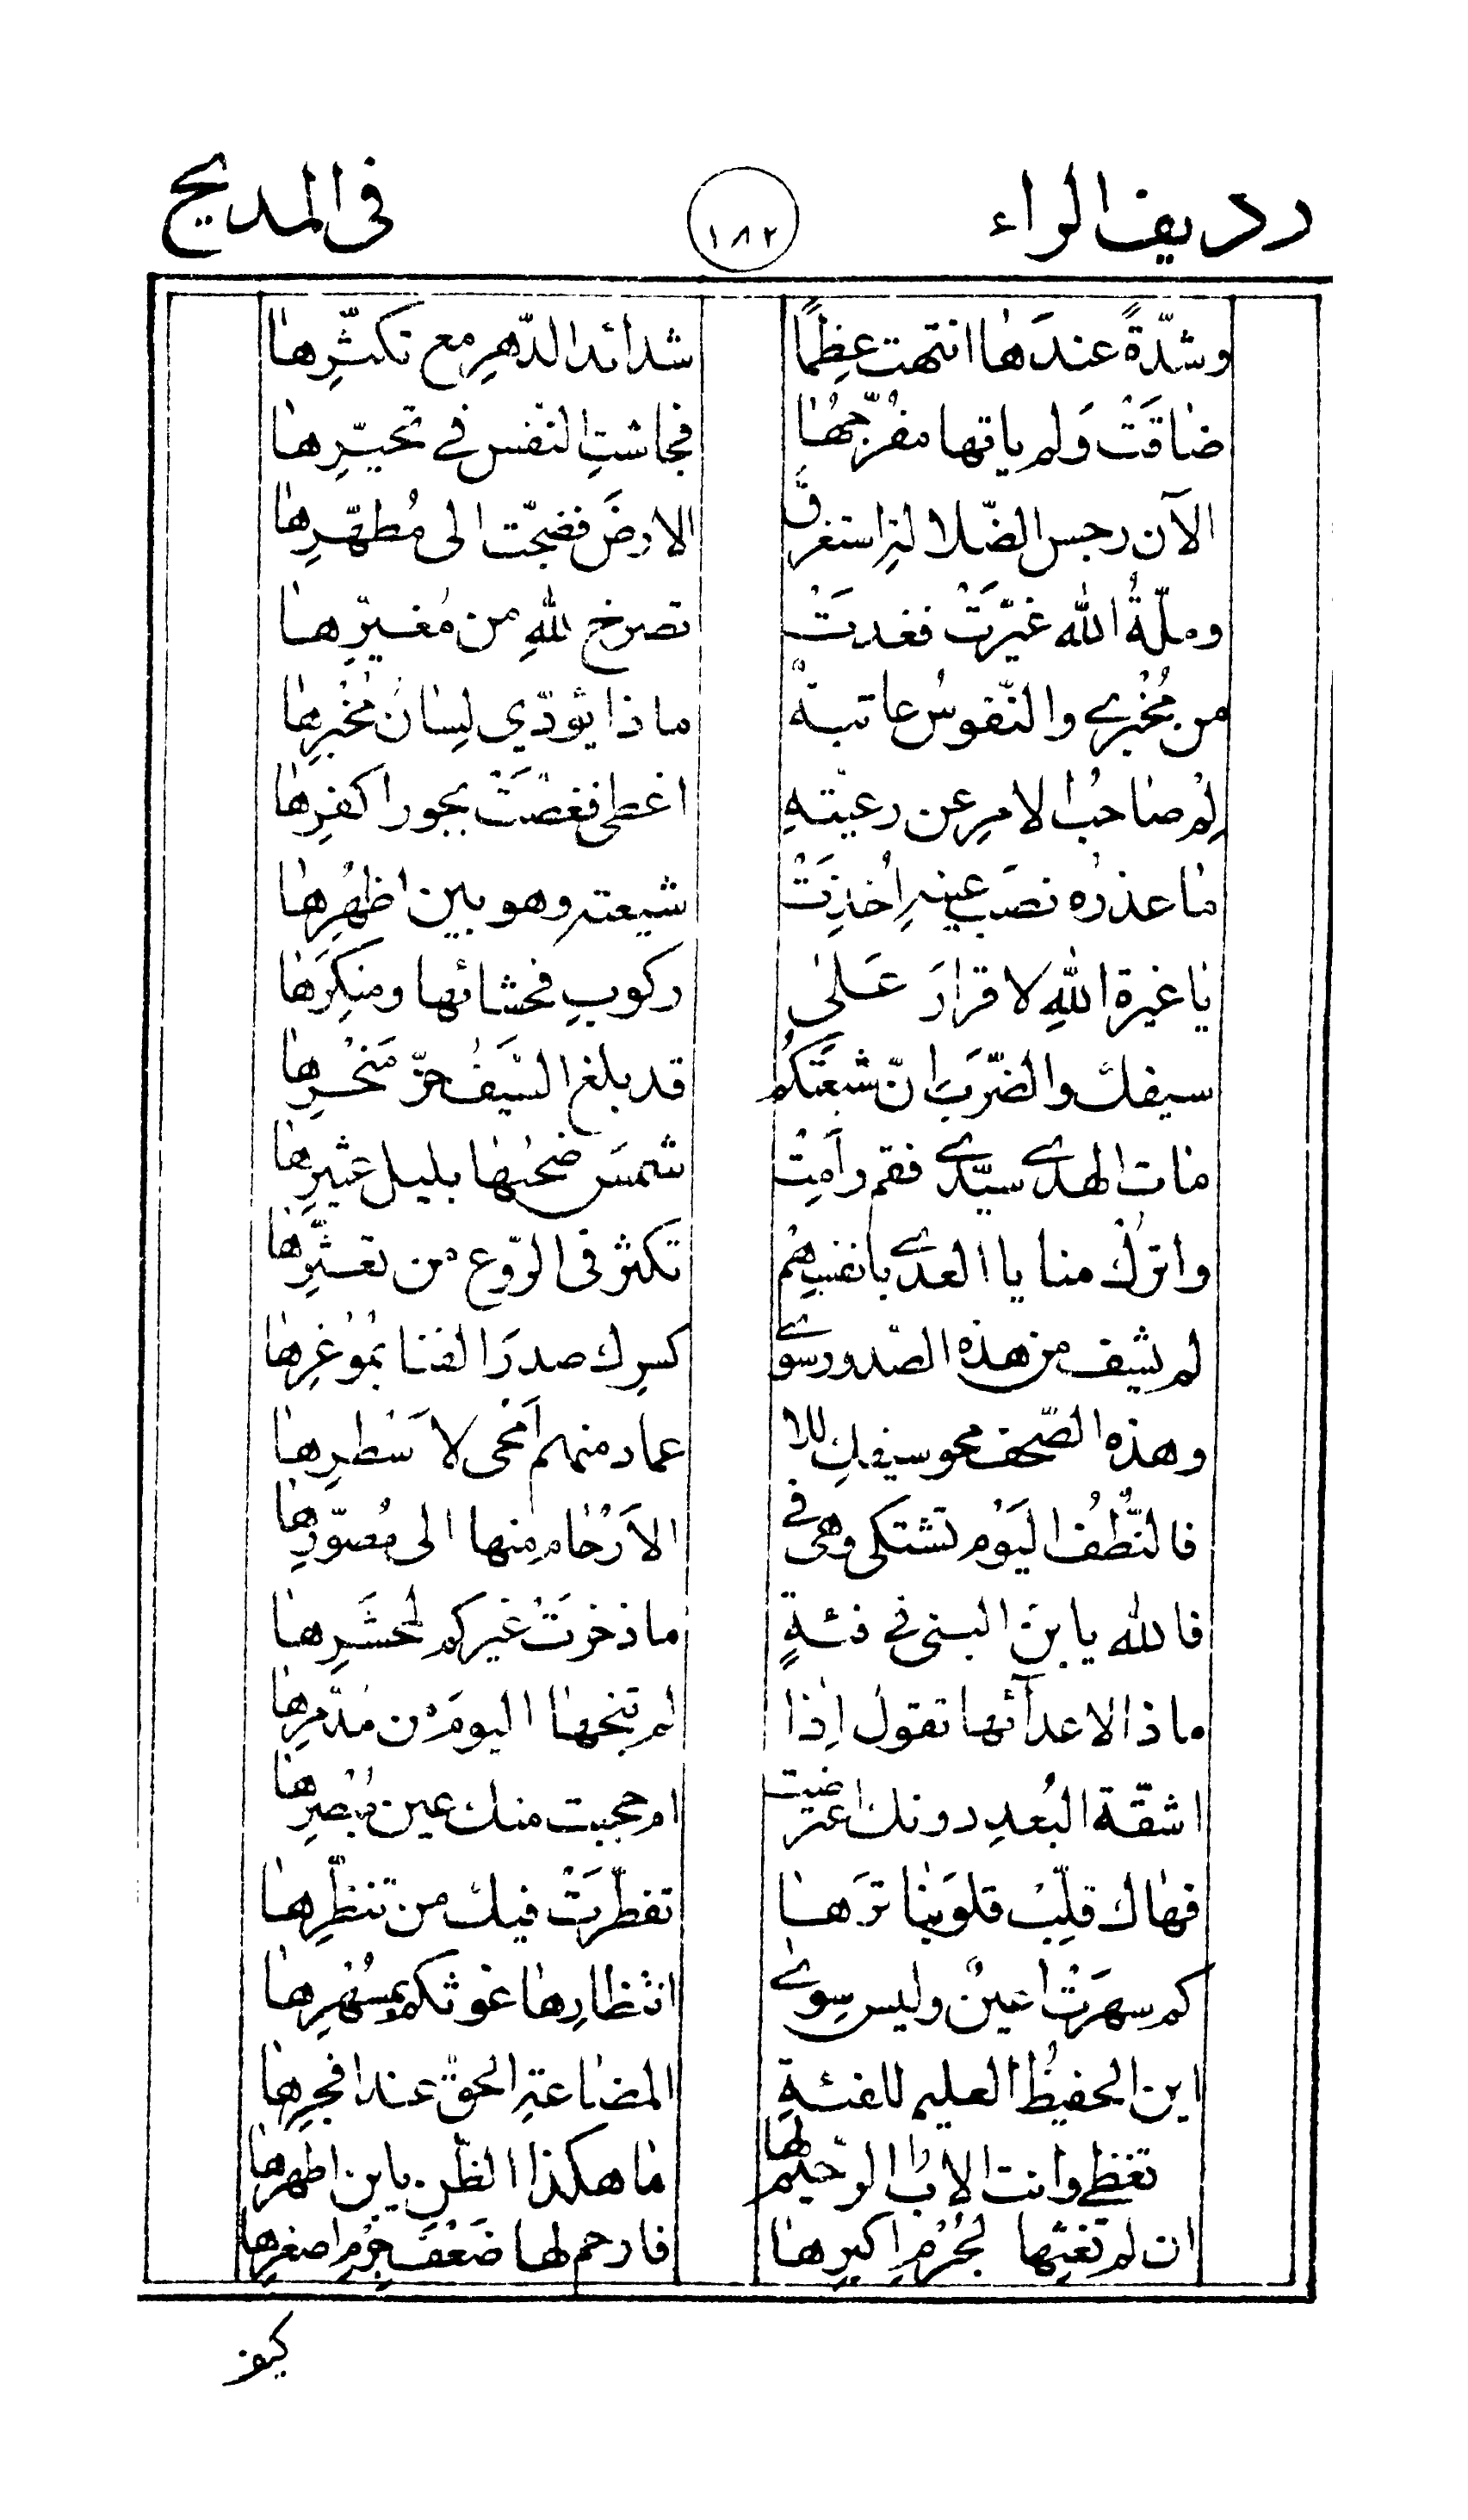 رديف الراء ١٨٢ فى المديح
وشدّةً عندَها انتهت عِظمًا شدائد الدّهرِ مع تكثّرِها
ضاقَتْ وَلم ياتها مفرّجُها فجاشتِ النّفس فے تحيّرِها
الآن رجس الضّلالةِ استغرقَ الارضَ فضجّت الى مُطهّرِها
وملّةُ الله غيّرَتْ فغدتْ تصرخ للهِ من مُغيّرِها
من مُخْبرے والنّفوسُ عاتبةٌ ماذا يؤدّي لِسانُ مُخْبرِها
لِمْ صاحبُ الامرِ عن رعيّتهِ اغطى فغصّتْ بجور اكفرِها
ما عذرُه نصبَ عينهِ اُخذِتْ شيعته وهو بين اظهُرِها
يا غيرة اللهِ لا قرارَ عَلى ركوبِ فحشائها ومنكِرَها
سيفك والضّربَ انّ شيعَتَكُم قد بلغ السّيَفُ حزّ مَنْحرِها
مات الهدے سيّدے فقم واَمِتْ شمسَ ضحٰها بليل عثيرِها
واترك منايا العدے بانفسِهُم تكثر فى الرّوع من تعثّرِها
لم يشف من هذه الصّدور سوے كسرِك صدرَ القنا بمُوغرِها
وهذه الصّحف محو سيفكِ للا عمار منهم اَمحى لاَسْطرِها
فالنُّطفُ اليَوْم تشتكى وهى فے الاَرْحام منها الى مُصوّرِها
فالله يا بنَ النبى فے فئةٍ ما ذخرَتْ غيركم لمحْشَرِها
ماذا لاعدآئها تقولُ اِذا لم تنجها اليومَ من مدّمرِها
اشقّة البُعدِ دونك اعترضت ام حجبت منك عين مُبْصرِها
فهاك قلّبْ قلوَبنا ترَها تفطّرَتْ فيك من تنظّرِها
كم سهرَتْ اعينٌ وليس سِوے انتظارِها غوثكم بمسْهِرِها
اين الحفيظُ العليم للفئةِ المضاعةِ الحقّ عند افجرِها
تغظے وانت الابُ الرّحيم لها ما هكذا الظّن يا بن اطهرها
ان لم تغِثها لجُرْمِ اكبرِها فارحم لها ضَعْفَ جرُم اصغرِها